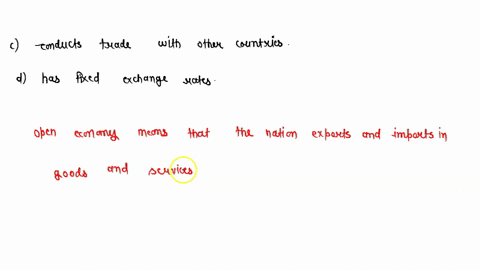 c) conducts trade with other countries.
d) has fixed exchange rates.
open economy means that the nation exports and imports in
goods and services